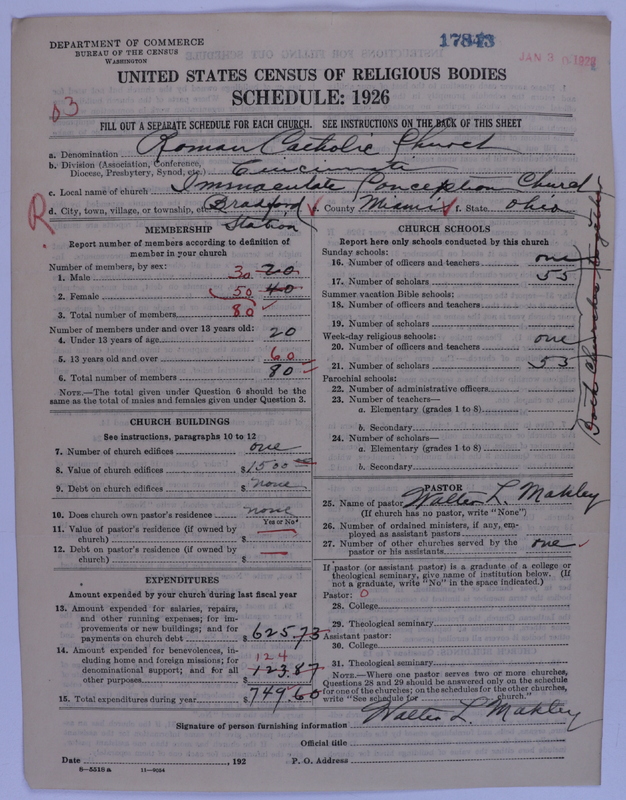 DEPARTMENT OF COMMERCE
BUREAU OF THE CENSUS
WASHINGTON
17843
JAN 3
UNITED STATES CENSUS OF RELIGIOUS BODIES
SCHEDULE: 1926
FILL OUT A SEPARATE SCHEDULE FOR EACH CHURCH. SEE INSTRUCTIONS ON THE BACK OF THIS SHEET
a. Denomination Roman Catholic Church
b. Division (Association, Conference, Diocese, Presbytery, Synod, etc.) Cincinnati
c. Local name of church Immaculate Conception Church
d. City, town, village, or township, etc. Bradford Station County Miami f. State Ohio
R
MEMBERSHIP
Report number of members according to definition of member in your church
Number of members, by sex:
1. Male 30 20
2. Female 50 40
3. Total number of members 80
Number of members under and over 13 years old:
4. Under 13 years of age 20
5. 13 years old and over 60
6. Total number of members 80
NOTE.—The total given under Question 6 should be the same as the total of males and females given under Question 3.
CHURCH BUILDINGS
See instructions, paragraphs 10 to 12
7. Number of church edifices one
8. Value of church edifices $1500
9. Debt on church edifices $ none
10. Does church own pastor's residence none
Yes or No
11. Value of pastor's residence (if owned by church) $ —
12. Debt on pastor's residence (if owned by church) $ —
EXPENDITURES
Amount expended by your church during last fiscal year
13. Amount expended for salaries, repairs, and other running expenses; for improvements or new buildings; and for payments on church debt $625.73
14. Amount expended for benevolences, including home and foreign missions; for denominational support; and for all other purposes $ 124 123.87
15. Total expenditures during year $749.60
CHURCH SCHOOLS
Report here only schools conducted by this church
Sunday schools:
16. Number of officers and teachers one
17. Number of scholars 53
Summer vacation Bible schools:
18. Number of officers and teachers
19. Number of scholars
Week-day religious schools:
20. Number of officers and teachers one
21. Number of scholars 53
Parochial schools:
22. Number of administrative officers
23. Number of teachers—
a. Elementary (grades 1 to 8)
b. Secondary
24. Number of scholars—
a. Elementary (grades 1 to 8)
b. Secondary
Both Churches together
PASTOR
25. Name of pastor Walter L. Makley
(If church has no pastor, write "None")
26. Number of ordained ministers, if any, employed as assistant pastors
27. Number of other churches served by the pastor or his assistants one
If pastor (or assistant pastor) is a graduate of a college or theological seminary, give name of institution below. (If not a graduate, write "No" in the space indicated.)
Pastor: 0
28. College
29. Theological seminary
Assistant pastor:
30. College
31. Theological seminary
NOTE.—Where one pastor serves two or more churches, Questions 28 and 29 should be answered only on the schedule for one of the churches; on the schedules for the other churches, write "See schedule for church."
Signature of person furnishing information Walter L. Makley
Official title
Date , 192 P. O. Address
8—5518a 11—9024